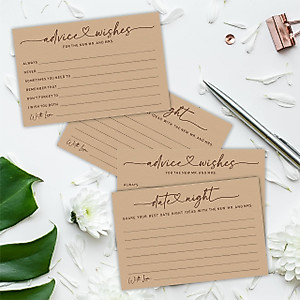 advice & wishes
FOR THE NEW MR. AND MRS.
ALWAYS
NEVER
SOMETIMES YOU NEED TO
REMEMBER THAT
DON'T FORGET TO
I WISH YOU BOTH
With Love,
night
IDEAS WITH THE NEW MR. AND MRS.
advice wishes
FOR THE NEW MR. AND MRS.
ALWAYS
date night
SHARE YOUR BEST DATE NIGHT IDEAS WITH THE NEW MR. AND MRS.
With Love,